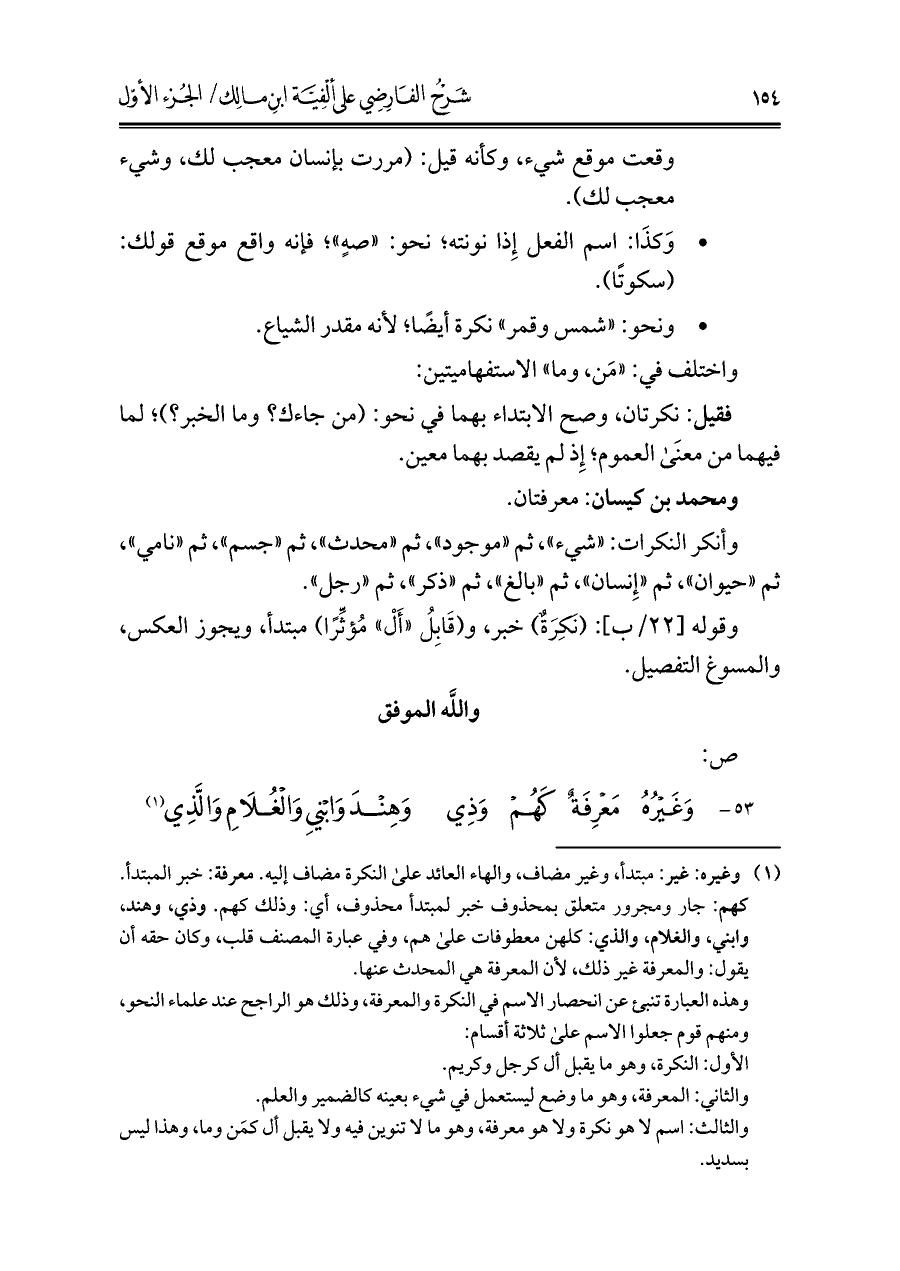 ١٥٤ شَرْحُ الفَارِضِي عَلى أَلْفِيَّة ابنِ مَالِك / الجُزء الأوّل
وقعت موقع شيء، وكأنه قيل: (مررت بإنسان معجب لك، وشيء
معجب لك).
• وَكذَا: اسم الفعل إِذا نونته؛ نحو: «صهٍ»؛ فإنه واقع موقع قولك:
(سكوتًا).
• ونحو: «شمس وقمر» نكرة أيضًا؛ لأنه مقدر الشياع.
واختلف في: «مَن، وما» الاستفهاميتين:
فقيل: نكرتان، وصح الابتداء بهما في نحو: (من جاءك؟ وما الخبر؟)؛ لما
فيهما من معنَىٰ العموم؛ إِذ لم يقصد بهما معين.
ومحمد بن كيسان: معرفتان.
وأنكر النكرات: «شيء»، ثم «موجود»، ثم «محدث»، ثم «جسم»، ثم «نامي»،
ثم «حيوان»، ثم «إِنسان»، ثم «بالغ»، ثم «ذكر»، ثم «رجل».
وقوله [٢٢/ ب]: (نَكِرَةٌ) خبر، و(قَابِلُ «أَلْ» مُؤثِّرًا) مبتدأ، ويجوز العكس،
والمسوغ التفصيل.
واللَّه الموفق
ص:
٥٣- وَغَيْرُهُ مَعْرِفَةٌ كَهُمْ وَذِي وَهِنْدَ وَابْنِي وَالْغُلَامِ وَالَّذِي(١)
(١) وغيره: غير: مبتدأ، وغير مضاف، والهاء العائد علىٰ النكرة مضاف إليه. معرفة: خبر المبتدأ.
كهم: جار ومجرور متعلق بمحذوف خبر لمبتدأ محذوف، أي: وذلك كهم. وذي، وهند،
وابني، والغلام، والذي: كلهن معطوفات علىٰ هم، وفي عبارة المصنف قلب، وكان حقه أن
يقول: والمعرفة غير ذلك، لأن المعرفة هي المحدث عنها.
وهذه العبارة تنبئ عن انحصار الاسم في النكرة والمعرفة، وذلك هو الراجح عند علماء النحو،
ومنهم قوم جعلوا الاسم علىٰ ثلاثة أقسام:
الأول: النكرة، وهو ما يقبل أل كرجل وكريم.
والثاني: المعرفة، وهو ما وضع ليستعمل في شيء بعينه كالضمير والعلم.
والثالث: اسم لا هو نكرة ولا هو معرفة، وهو ما لا تنوين فيه ولا يقبل أل كمَن وما، وهذا ليس
بسديد.